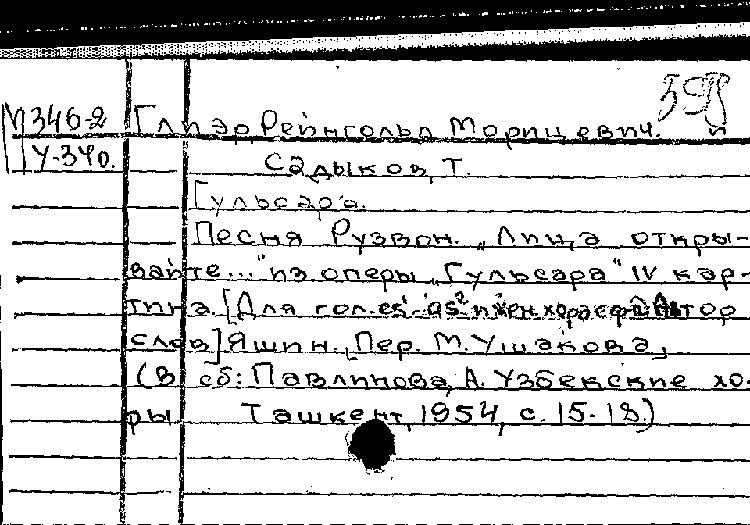 М346-2 Глиэр, Рейнгольд Морицевич. и
У-340. Садыков, Т.
Гульсара.
Песня Рузвон. „Лица откры-
вайте..." из оперы „Гульсара" IV кар-
тина. [Для гол. es¹-as² и жен. хора с ф-п. Автор
слов] Яшин. [Пер. М. Ушакова]
(В сб: Павлинова, А. Узбекские хо-
ры Ташкент, 1954, с. 15-18.)